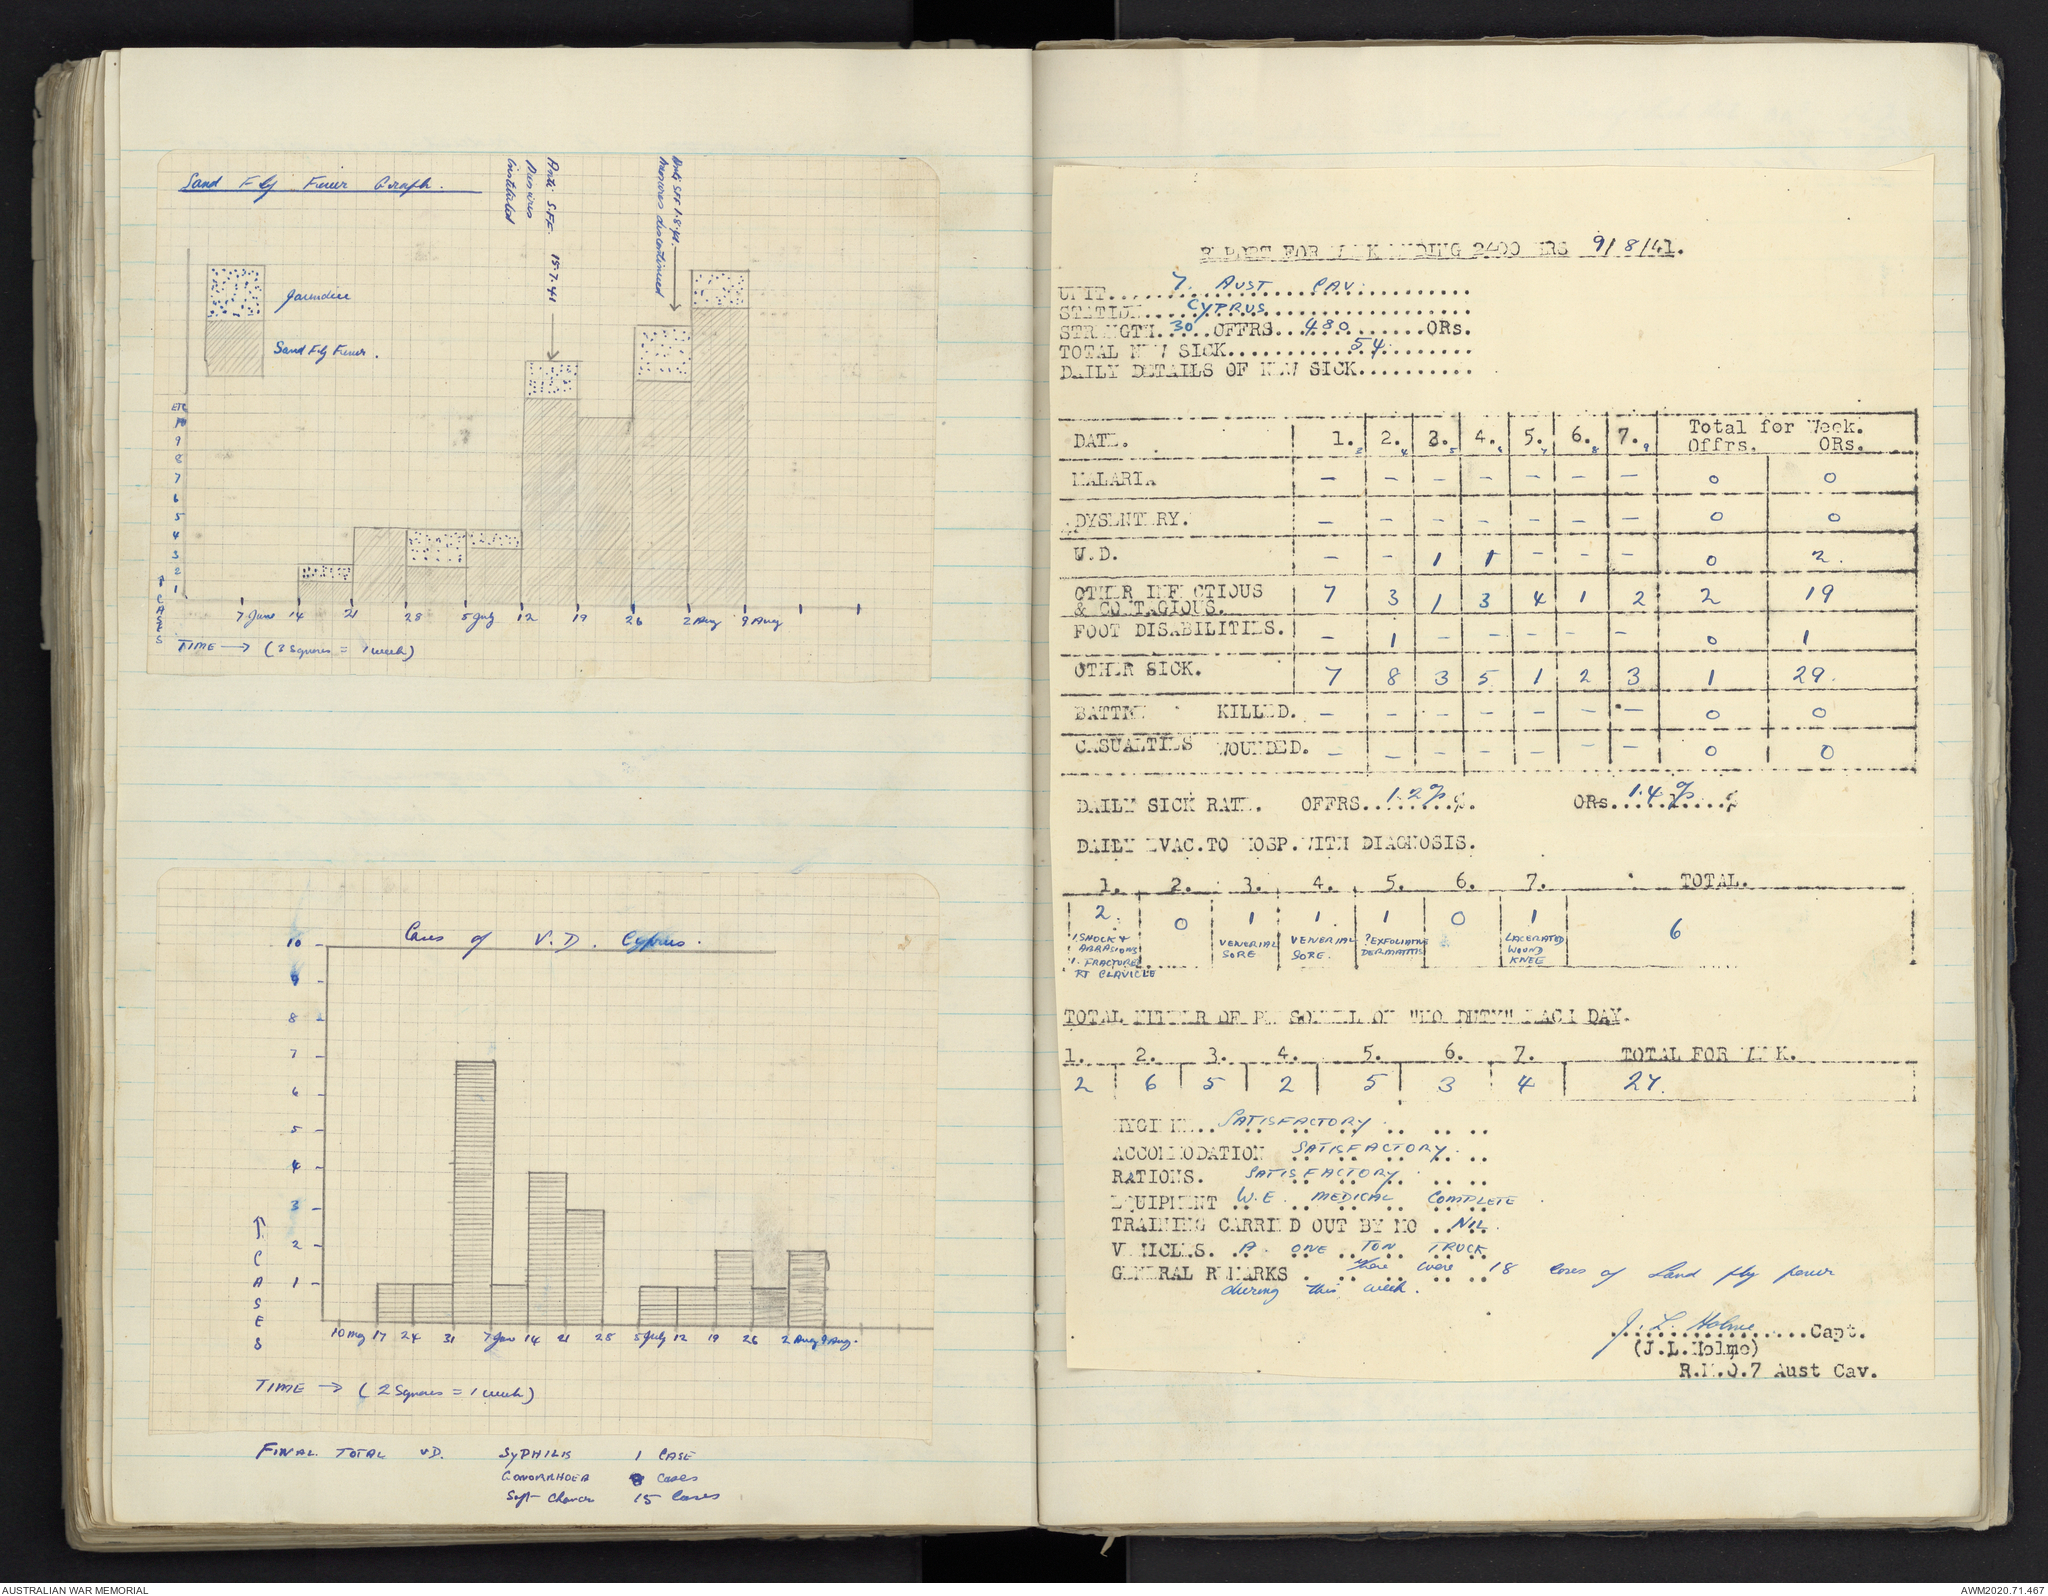 Sand Fly Fever Graph.
Anti S.F.F. 15.7.41
Measures
instituted
Anti SFF 1.8.41.
Measures discontinued
Jaundice
Sand Fly Fever.
ETC
10
9
8
7
6
5
4
3
2
1
↑ CASES
7 June 14 21 28 5 July 12 19 26 2 Aug 9 Aug
TIME → (3 squares = 1 week)
Cases of V.D. Cyprus.
10
9
8
7
6
5
4
3
2
1
↑ CASES
10 may 17 24 31 7 Jun 14 21 28 5 July 12 19 26 2 Aug 9 Aug.
TIME → (2 squares = 1 week)
FINAL TOTAL VD. SYPHILIS 1 CASE
GONORRHOEA cases
Soft Chancre 15 Cases
REPORT FOR WEEK ENDING 2400 HRS 9/8/41.
UNIT.....7 AUST CAV.....
STATION.....CYPRUS.....
STRENGTH..30..OFFRS...480.......ORs.
TOTAL NEW SICK............54.......
DAILY DETAILS OF NEW SICK..........
DATE. 1. 2. 3. 4. 5. 6. 7. Total for Week.
3 4 5 6 7 8 9 Offrs. ORs.
MALARIA – – – – – – – 0 0
DYSENTERY. – – – – – – – 0 0
V.D. – – 1 1 – – – 0 2.
OTHER INFECTIOUS
& CONTAGIOUS. 7 3 1 3 4 1 2 2 19
FOOT DISABILITIES. – 1 – – – – – 0 1
OTHER SICK. 7 8 3 5 1 2 3 1 29.
BATTLE KILLED. – – – – – – – 0 0
CASUALTIES WOUNDED. – – – – – – – 0 0
DAILY SICK RATE. OFFRS...1.2%... ORs...1.4%...
DAILY EVAC.TO HOSP.WITH DIAGNOSIS.
1. 2. 3. 4. 5. 6. 7. TOTAL.
2. 0 1 1. 1 0 1 6
1. SHOCK + ABRASIONS
1. FRACTURED RT CLAVICLE
VENERIAL SORE
VENERIAL SORE.
?EXFOLIATIVE DERMATITIS
LACERATED WOUND KNEE
TOTAL NUMBER OF PERSONELL ON "NO DUTY" EACH DAY.
1. 2. 3. 4. 5. 6. 7. TOTAL FOR WEEK.
2 6 5 2 5 3 4 27.
HYGIENE.. SATISFACTORY
ACCOMMODATION SATISFACTORY
RATIONS. SATISFACTORY
EQUIPMENT W.E. MEDICAL COMPLETE
TRAINING CARRIED OUT BY MO .. NIL
VEHICLES. A. ONE TON TRUCK
GENERAL REMARKS There were 18 cases of Sand fly fever
during this week.
J. L. Holme..........Capt.
(J.L.Holme)
R.M.O.7 Aust Cav.
AUSTRALIAN WAR MEMORIAL
AWM2020.71.467